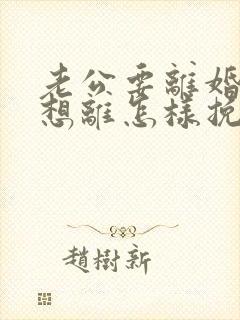 老公要離婚
想離怎樣挽
趙樹新